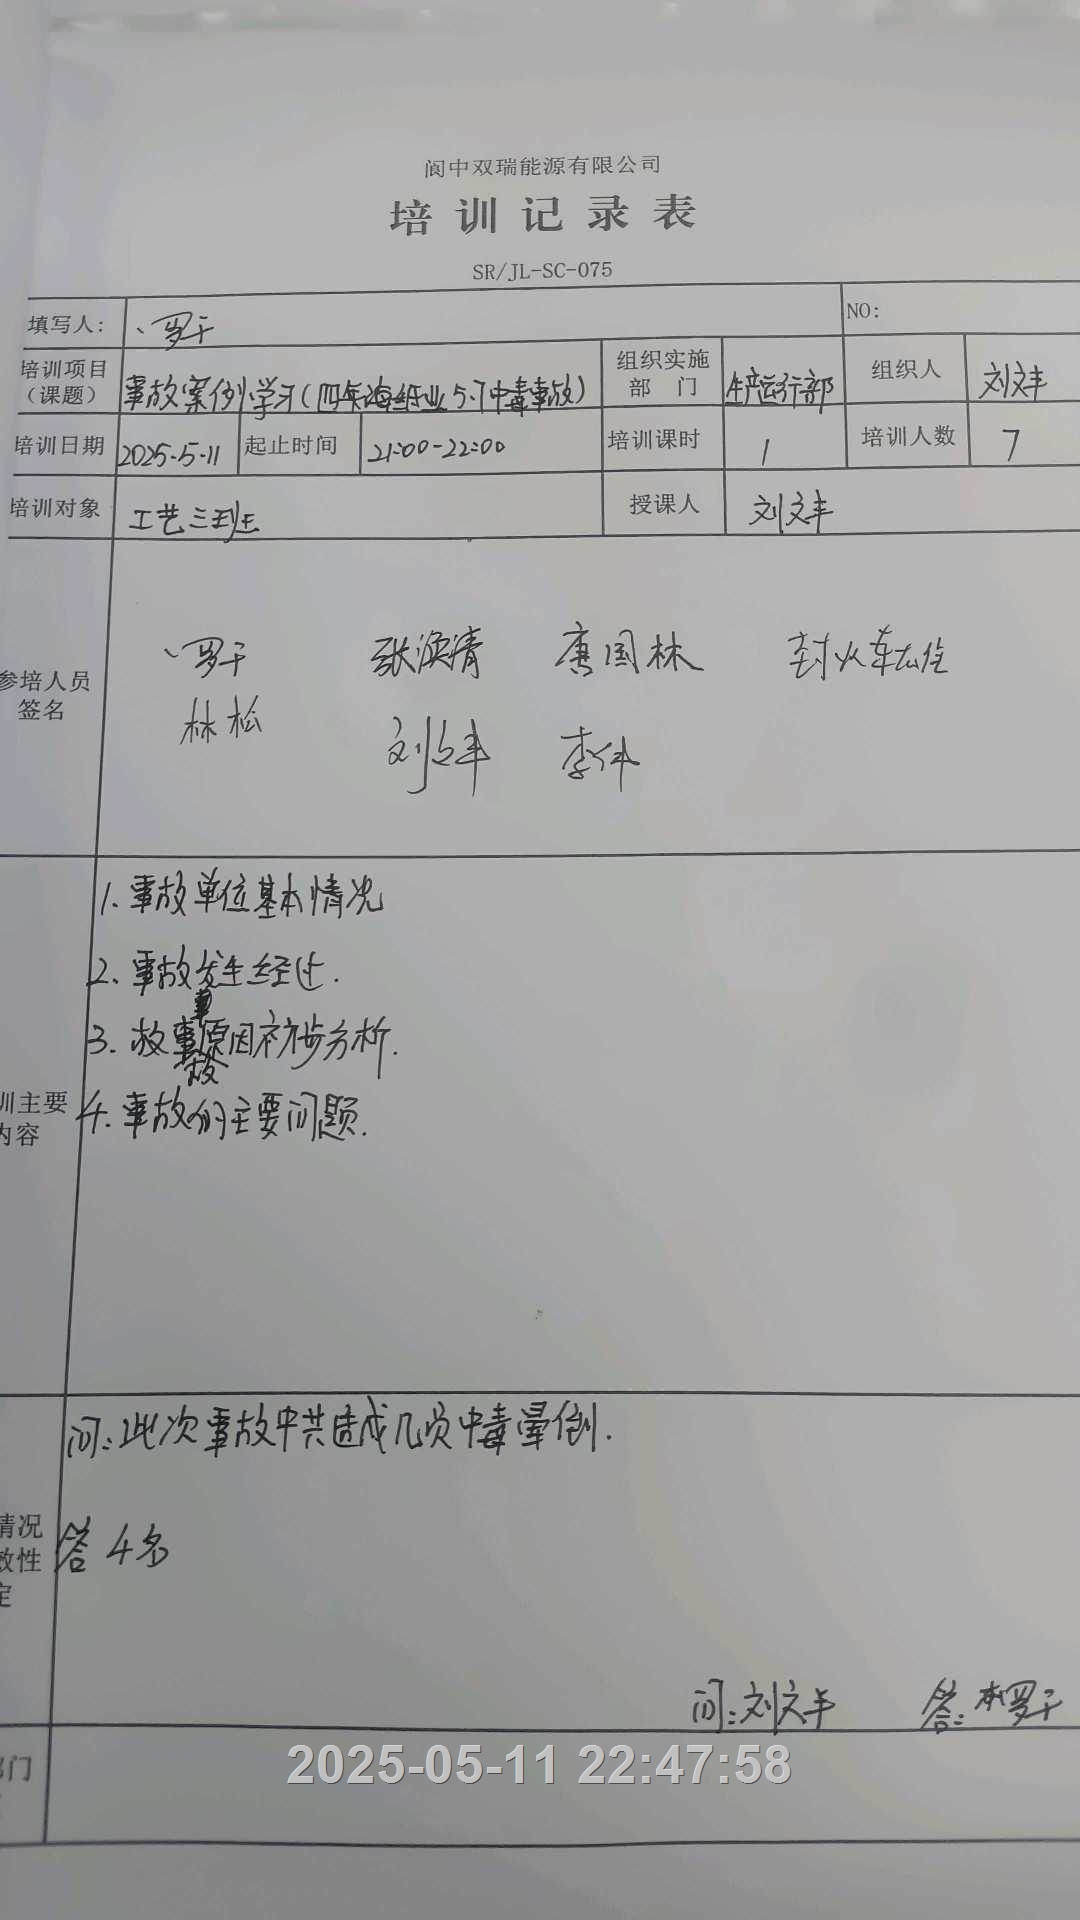 阆中双瑞能源有限公司
培训记录表
SR/JL-SC-075
填写人: 罗干 NO:
培训项目（课题） 事故案例学习(四 海纸业5.7中毒事故) 组织实施部门 生产运行部 组织人 刘文丰
培训日期 2025-5-11 起止时间 21:00-22:00 培训课时 1 培训人数 7
培训对象 工艺三班 授课人 刘文丰
参培人员签名
罗干 张涣清 唐国林
林松 刘文丰 李伟
训主要
内容
1. 事故单位基本情况
2、事故发生经过.
3. 事故原因初步分析.
4. 事故的主要问题.
情况
效性
定
问:此次事故中共造成几员中毒晕倒.
答 4名
问:刘文丰 答: 罗干
部门
2025-05-11 22:47:58